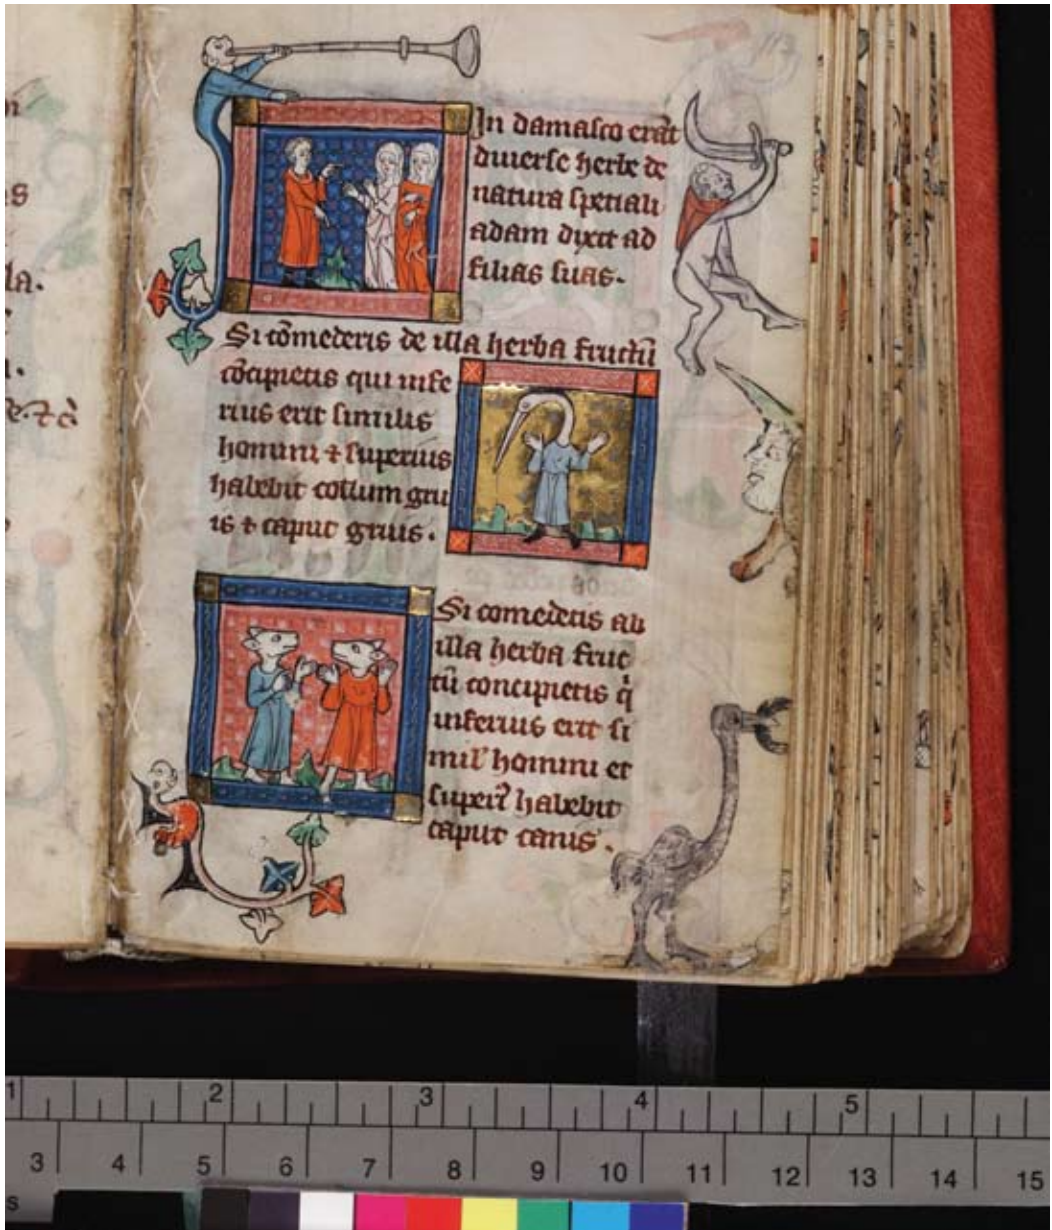 In damasco erãt
diuerse herbe de
natura speciali
adam dixit ad
filias suas.
Si cõmederis de illa herba fructũ
cõcipietis qui infe
rius erit similis
homini ⁊ superius
habebit collum gru
is ⁊ caput gruis.
Si comedetis ab
illa herba fruc
tũ concipietis q̃
inferius erit si
mil' homini et
super̃ habebit
caput canis.
la.
1 2 3 4 5
3 4 5 6 7 8 9 10 11 12 13 14 15
s